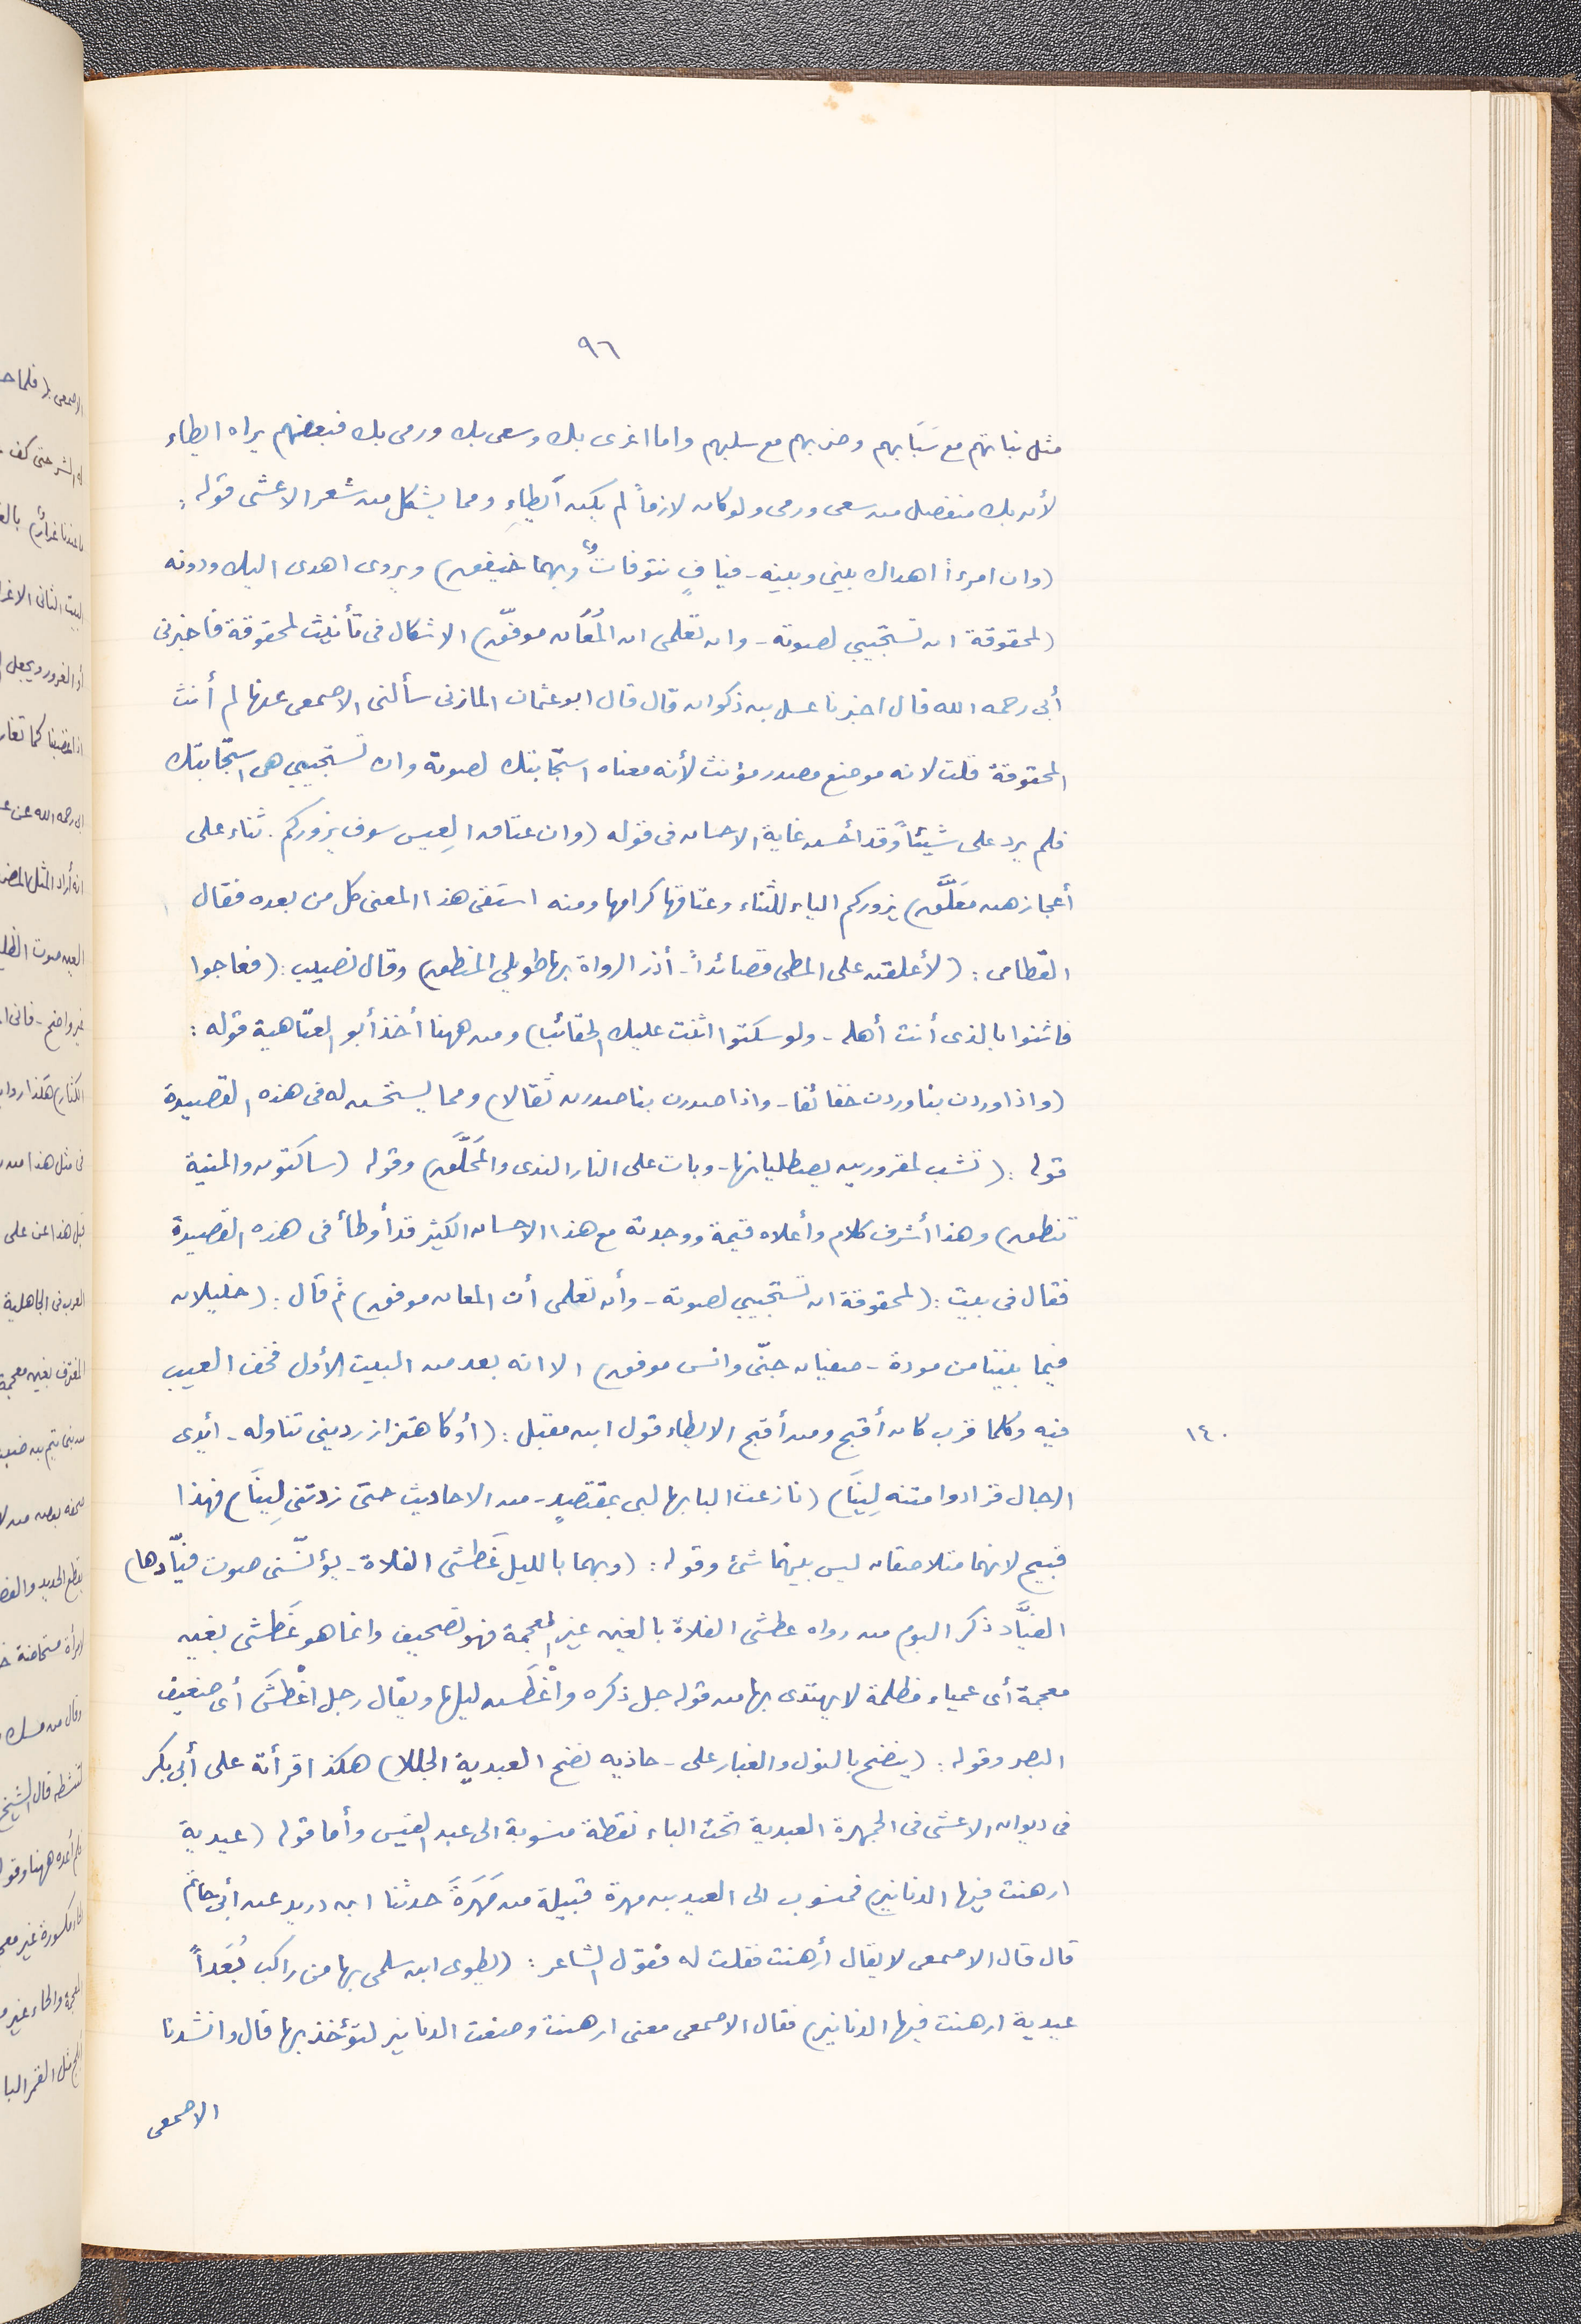 ٩٦
مثل نباتهم مع سَبَابهم وضربهم مع سلبهم واما اغرى بك وسعى بك ورمى بك فبعضهم يراه ايطاء
لأن بك منفصل من سعى ورمى ولو كان لازماً لم يكن ايطاءِ ومما يشكل من شعر الاعشى قوله:
(وان امرءاً اهداك بينى وبينه - فيافٍ تنوفاتٌ وبهما خيفق) ويروى اهدى اليك ودونه
(لمحقوقة ان تستجيبي لصوته - وان تعلمى ان المُعُان موفّق) الاشكال فى تأنيث لمحقوقة فاخبرنى
أبى رحمه الله قال اخبرنا عسل بن ذكوان قال قال ابو عثمان المازنى سألنى الاصمعى عنها لم أنث
المحقوقة قلت لانه موضع مصدر مؤنث لأنه معناه استجابتك لصوته وان تستجيبي هى استجابتك
فلم يرد على شيئاً وقد أحسن غاية الاحسان فى قوله (وان عتاق العِيس سوف يزوركم. ثناء على
أعجازهن مَعَلَّق) يزوركم الياء للثناء وعتاقها كرامها ومنه استقى هذا المعنى كل من بعده فقال
القطامى: (لأعلقن على المطى قصائداً - أذر الرواة بها طويلى المنطق) وقال نصيب: (فعاجوا
فاثنوا بالذى أنت أهله - ولو سكتوا اثنت عليك الحقائب) ومن ههنا أخذ أبو العتاهية قوله:
(واذا وردن بنا وردن خفائفا - واذا صدرن بنا صدرن ثقالا) ومما يستحسن له فى هذه القصيدة
قوله: (تشب لمقرورين يصطليانها - وبات على النار الندى والمُحَلَّق) وقوله (ساكتون والمنية
تنطق) وهذا أشرف كلام وأعلاه قيمة ووجدته مع هذا الاحسان الكثير قد أوطأ فى هذه القصيدة
فقال فى بيت: (لمحقوقة ان تستجيبي لصوته - وأن تعلمى أن المعان موفق) ثم قال: (خليلان
فيما بيننا من مودة - صفيان جنّى وانس موفق) الا انه بعد من البيت الأول فخف العيب
فيه وكلما قرب كان أقبح ومن أقبح الايطاء قول ابن مقبل: (أو كاهتزاز ردينى تناوله - أيدى
١٤٠
الرجال فزادوا متنه لِينَا) (نازعت البابها لبى بمقتصدٍ - من الاحاديث حتى زدتنى لِينَا) فهذا
قبيح لانهما متلاصقان ليس بينهما شئ وقوله: (وبهما بالليل غَطشى الفلاة - يؤنّسنى صوت فيّادها)
الفيَّاد ذكر البوم من رواه عطشى الفلاة بالعين غير المعجمة فهو تصحيف وانما هو غَطشى بغين
معجمة أى عمياء مظلمة لا يهتدى بها من قوله جل ذكره وأغْطَش ليلها ويقال رجل اغْطَشَ أى ضعيف
البصر وقوله: (ينضح بالبول والغبار على - حاذيه نضح العبدية الجللا) هكذا قرأته على أبى بكر
فى ديوان الاعشى فى الجمهرة العبدية تحت الباء نقطة منسوبة الى عبد القيس وأما قوله (عيدية
ارهنت فيها الدنانير) فمنسوب الى العيد بن مهرة قبيلة من مَهَرَة حدثنا ابن دريد عن أبى حاتم
قال قال الاصمعى لا يقال أرهنت فقلت له فقول الشاعر: (يطوى ابن سلمى بها من راكب بُعَداً
عيدية ارهنت فيها الدنانير) فقال الاصمعى معنى ارهنت وضعت الدنانير لتؤخذ بها قال وانشدنا
الاصمعى